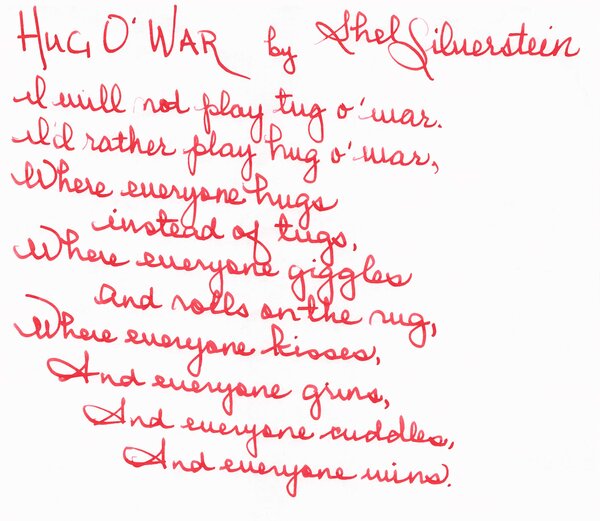 HUG O' WAR by Shel Silverstein
I will not play tug o' war.
I'd rather play hug o' war,
Where everyone hugs
instead of tugs,
Where everyone giggles
and rolls on the rug,
Where everyone kisses,
And everyone grins,
And everyone cuddles,
And everyone wins.